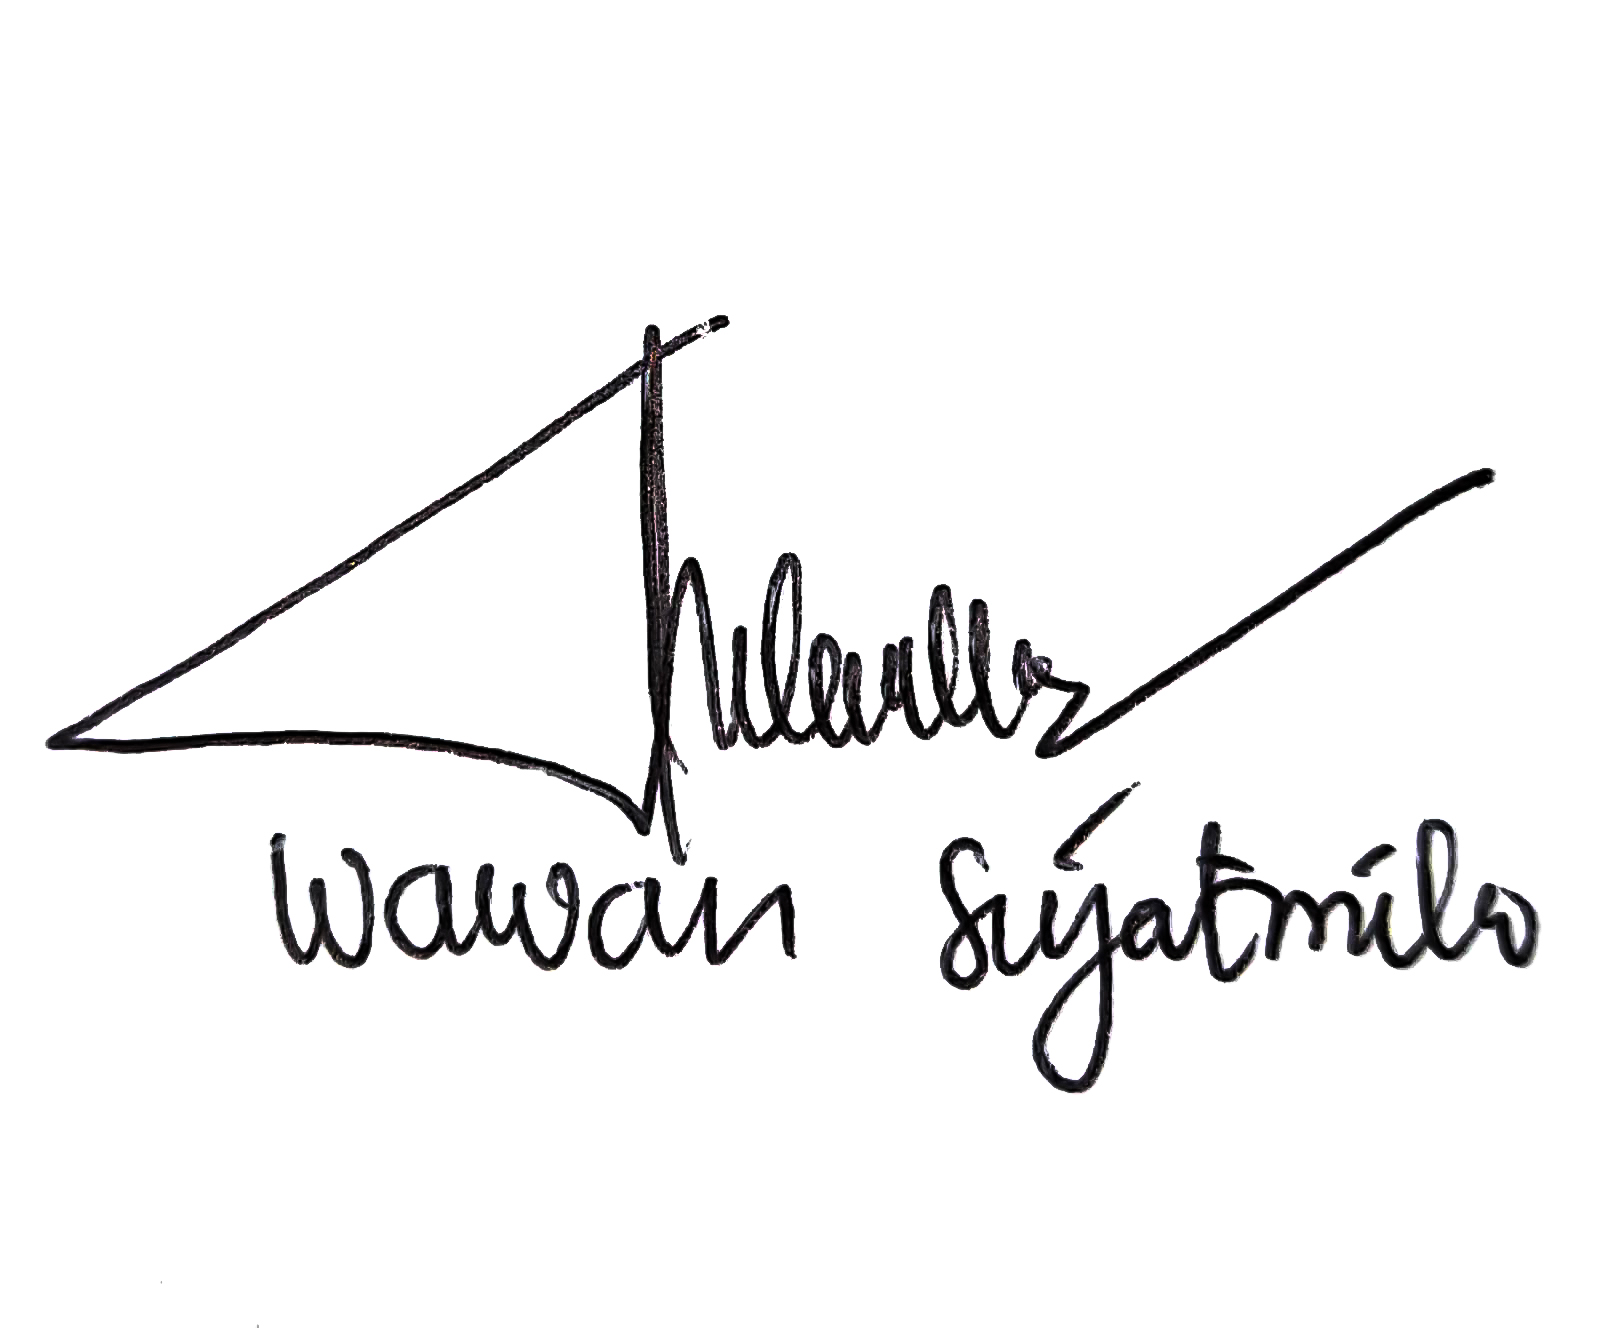 Wawan Sujatmiko